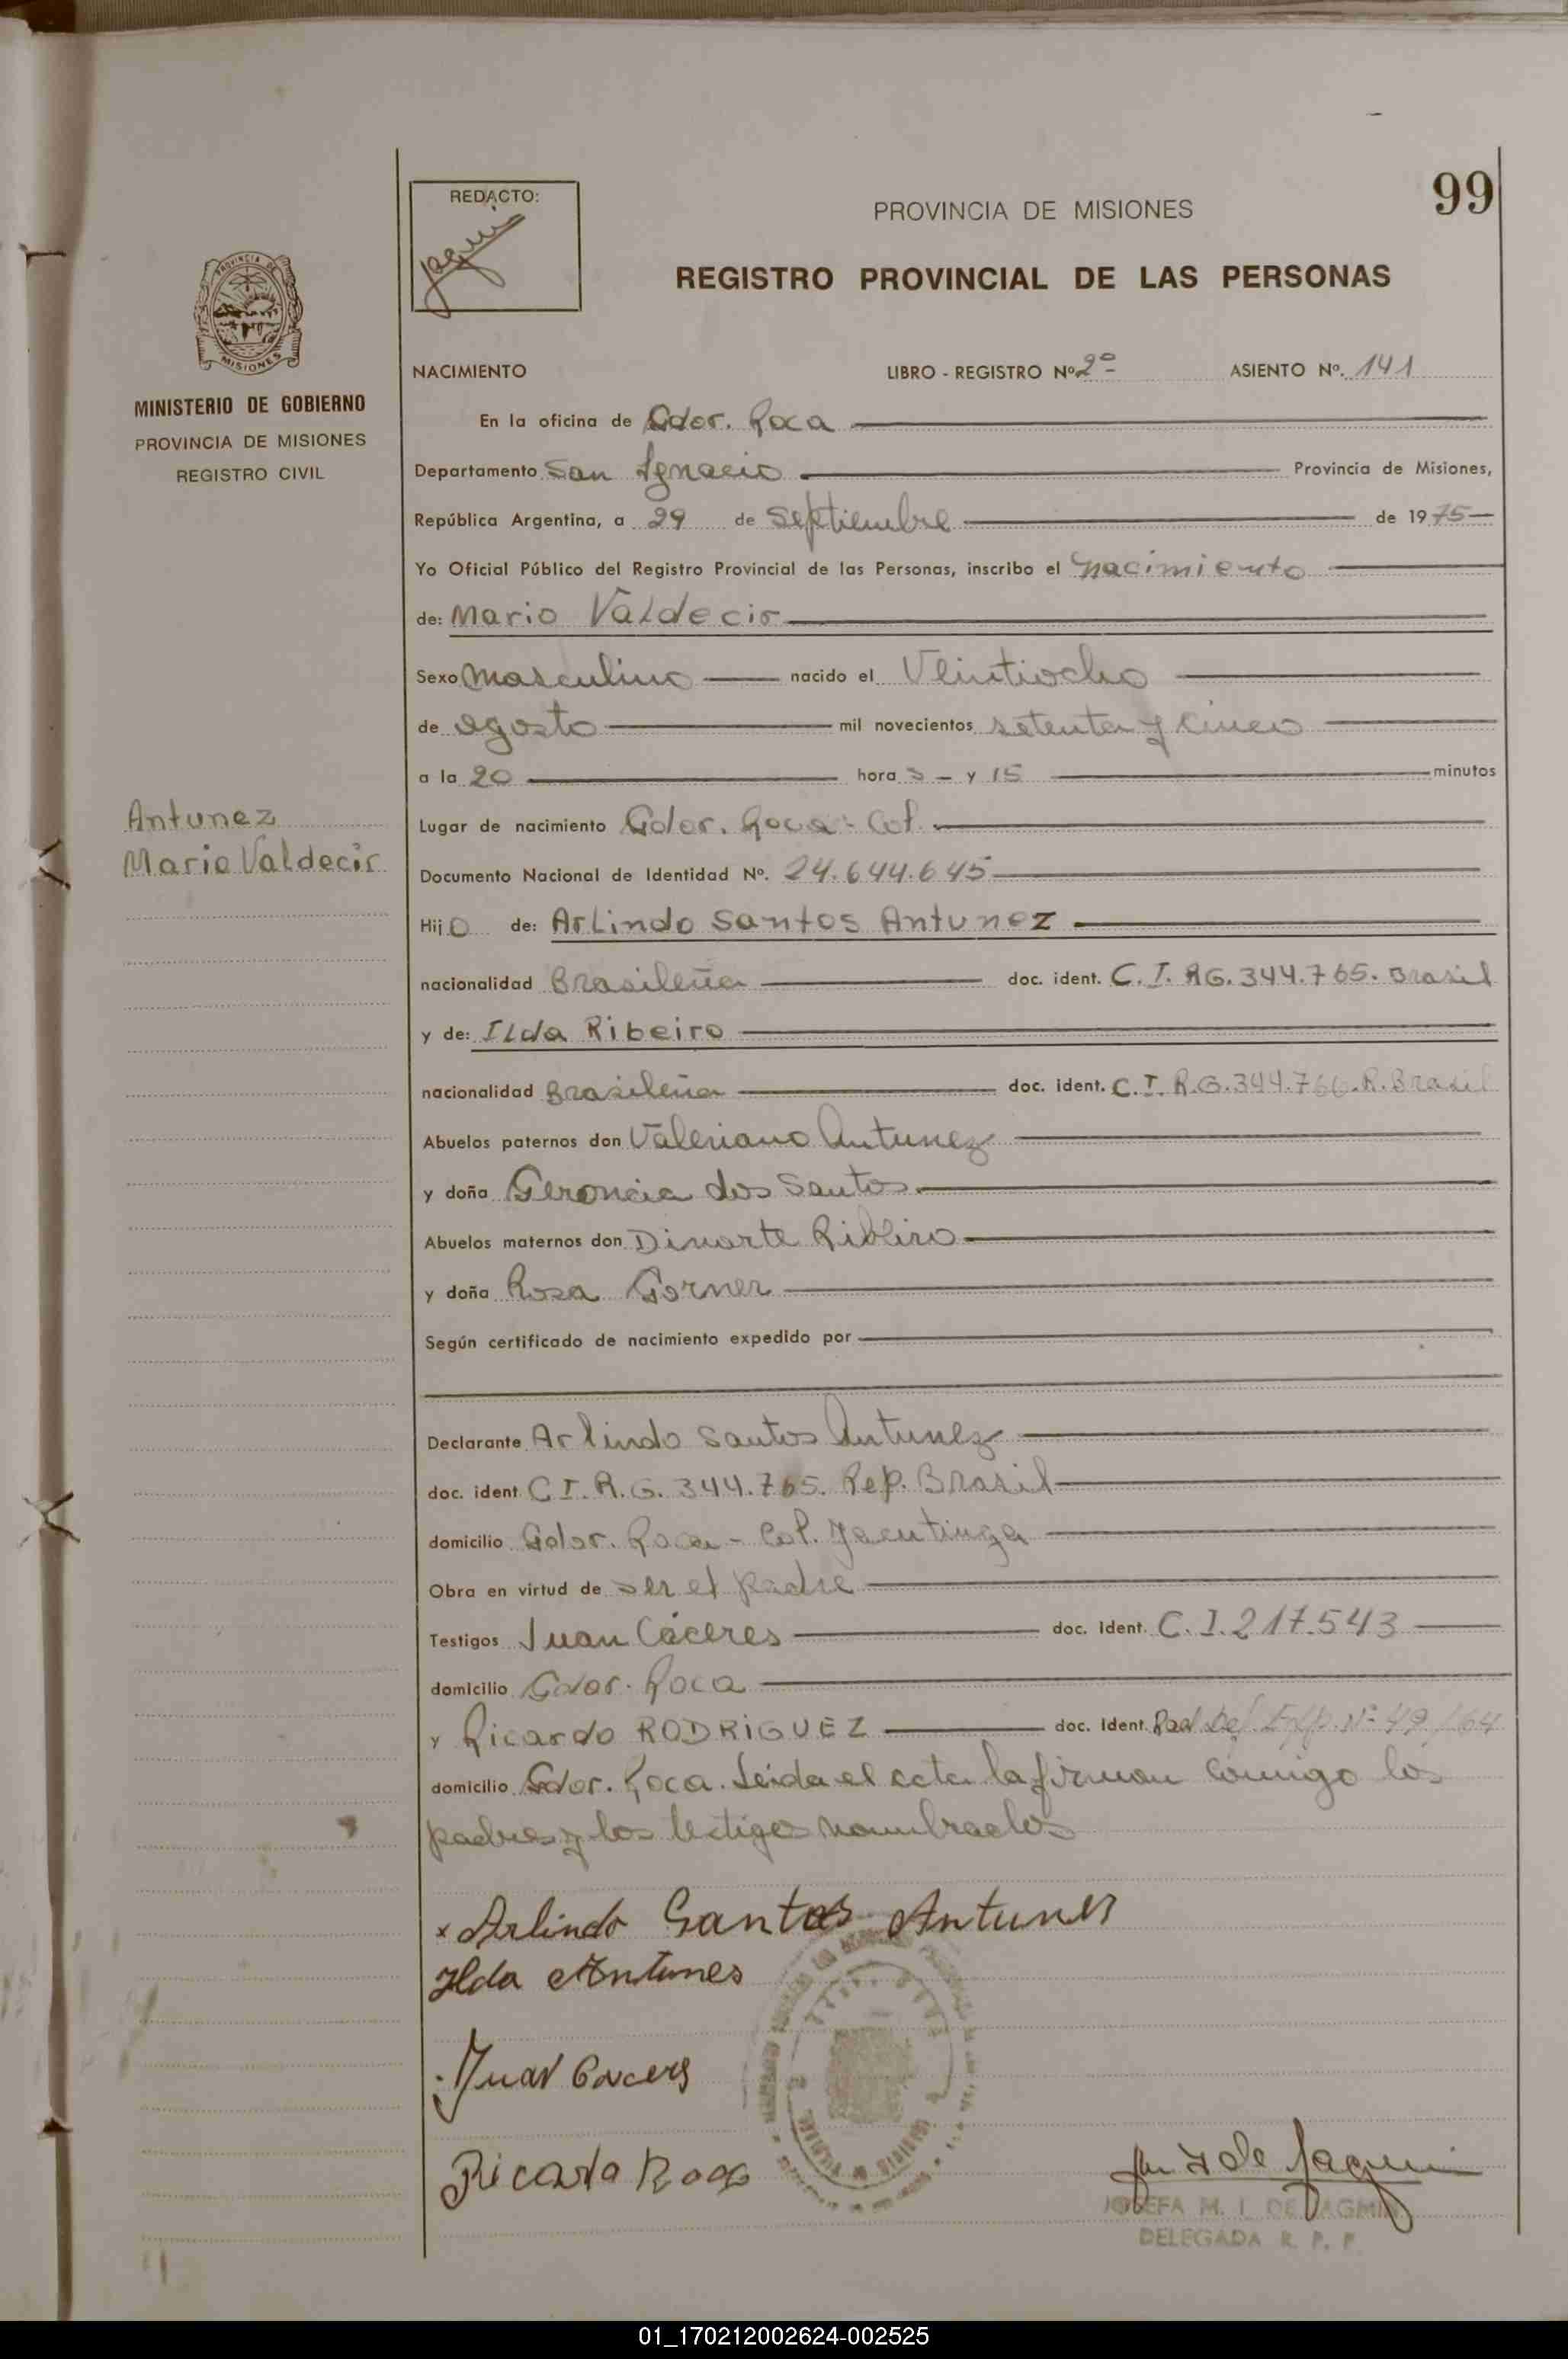 99
REDACTO:
PROVINCIA DE MISIONES
REGISTRO PROVINCIAL DE LAS PERSONAS
PROVINCIA DE
MISIONES
MINISTERIO DE GOBIERNO
PROVINCIA DE MISIONES
REGISTRO CIVIL
NACIMIENTO LIBRO - REGISTRO Nº 2º ASIENTO Nº. 141
En la oficina de Gdor. Roca
Departamento San Ignacio Provincia de Misiones,
República Argentina, a 29 de septiembre de 1975
Yo Oficial Público del Registro Provincial de las Personas, inscribo el nacimiento
de: Mario Valdecir
Sexo masculino nacido el Veintiocho
de agosto mil novecientos setenta y cinco
a la 20 hora s - y 15 minutos
Antunez
Mario Valdecir
Lugar de nacimiento Gdor. Roca - Col.
Documento Nacional de Identidad Nº. 24.644.645
Hijo de: Arlindo Santos Antunez
nacionalidad Brasileña doc. ident. C. I. RG. 344.765. Brasil
y de: Ilda Ribeiro
nacionalidad Brasileña doc. ident. C. I. R.G. 344.766. R. Brasil
Abuelos paternos don Valeriano Antunez
y doña Geroncia dos Santos
Abuelos maternos don Dinarte Ribeiro
y doña Rosa Gorner
Según certificado de nacimiento expedido por
Declarante Arlindo Santos Antunez
doc. ident. C I. R. G. 344.765. Rep. Brasil
domicilio Gdor. Roca - Col. Jacutinga
Obra en virtud de ser el padre
Testigos Juan Cáceres doc. ident. C. I. 217.543
domicilio Gdor. Roca
y Ricardo RODRIGUEZ doc. Ident. Nº 49/64
domicilio Gdor. Roca. Leida el acta la firman conmigo los
padres y los testigos nombrados
x Arlindo Santos Antunes
Ilda Antunes
Juan Caceres
Ricardo
JOSEFA M. I. DE JAGMIN
DELEGADA R. P. P.
01_170212002624-002525